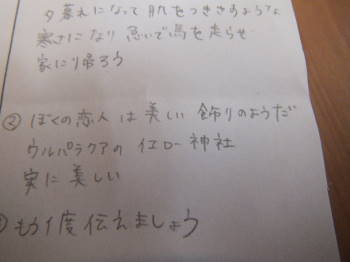 夕暮れになって肌をつきさのような
寒さになり 急いで馬を走らせ
家にり帰ろう
② ぼくの恋人は美しい飾りのようだ
ウルパラクアの イエロー神社
実に美しい
もう1度伝えましょう